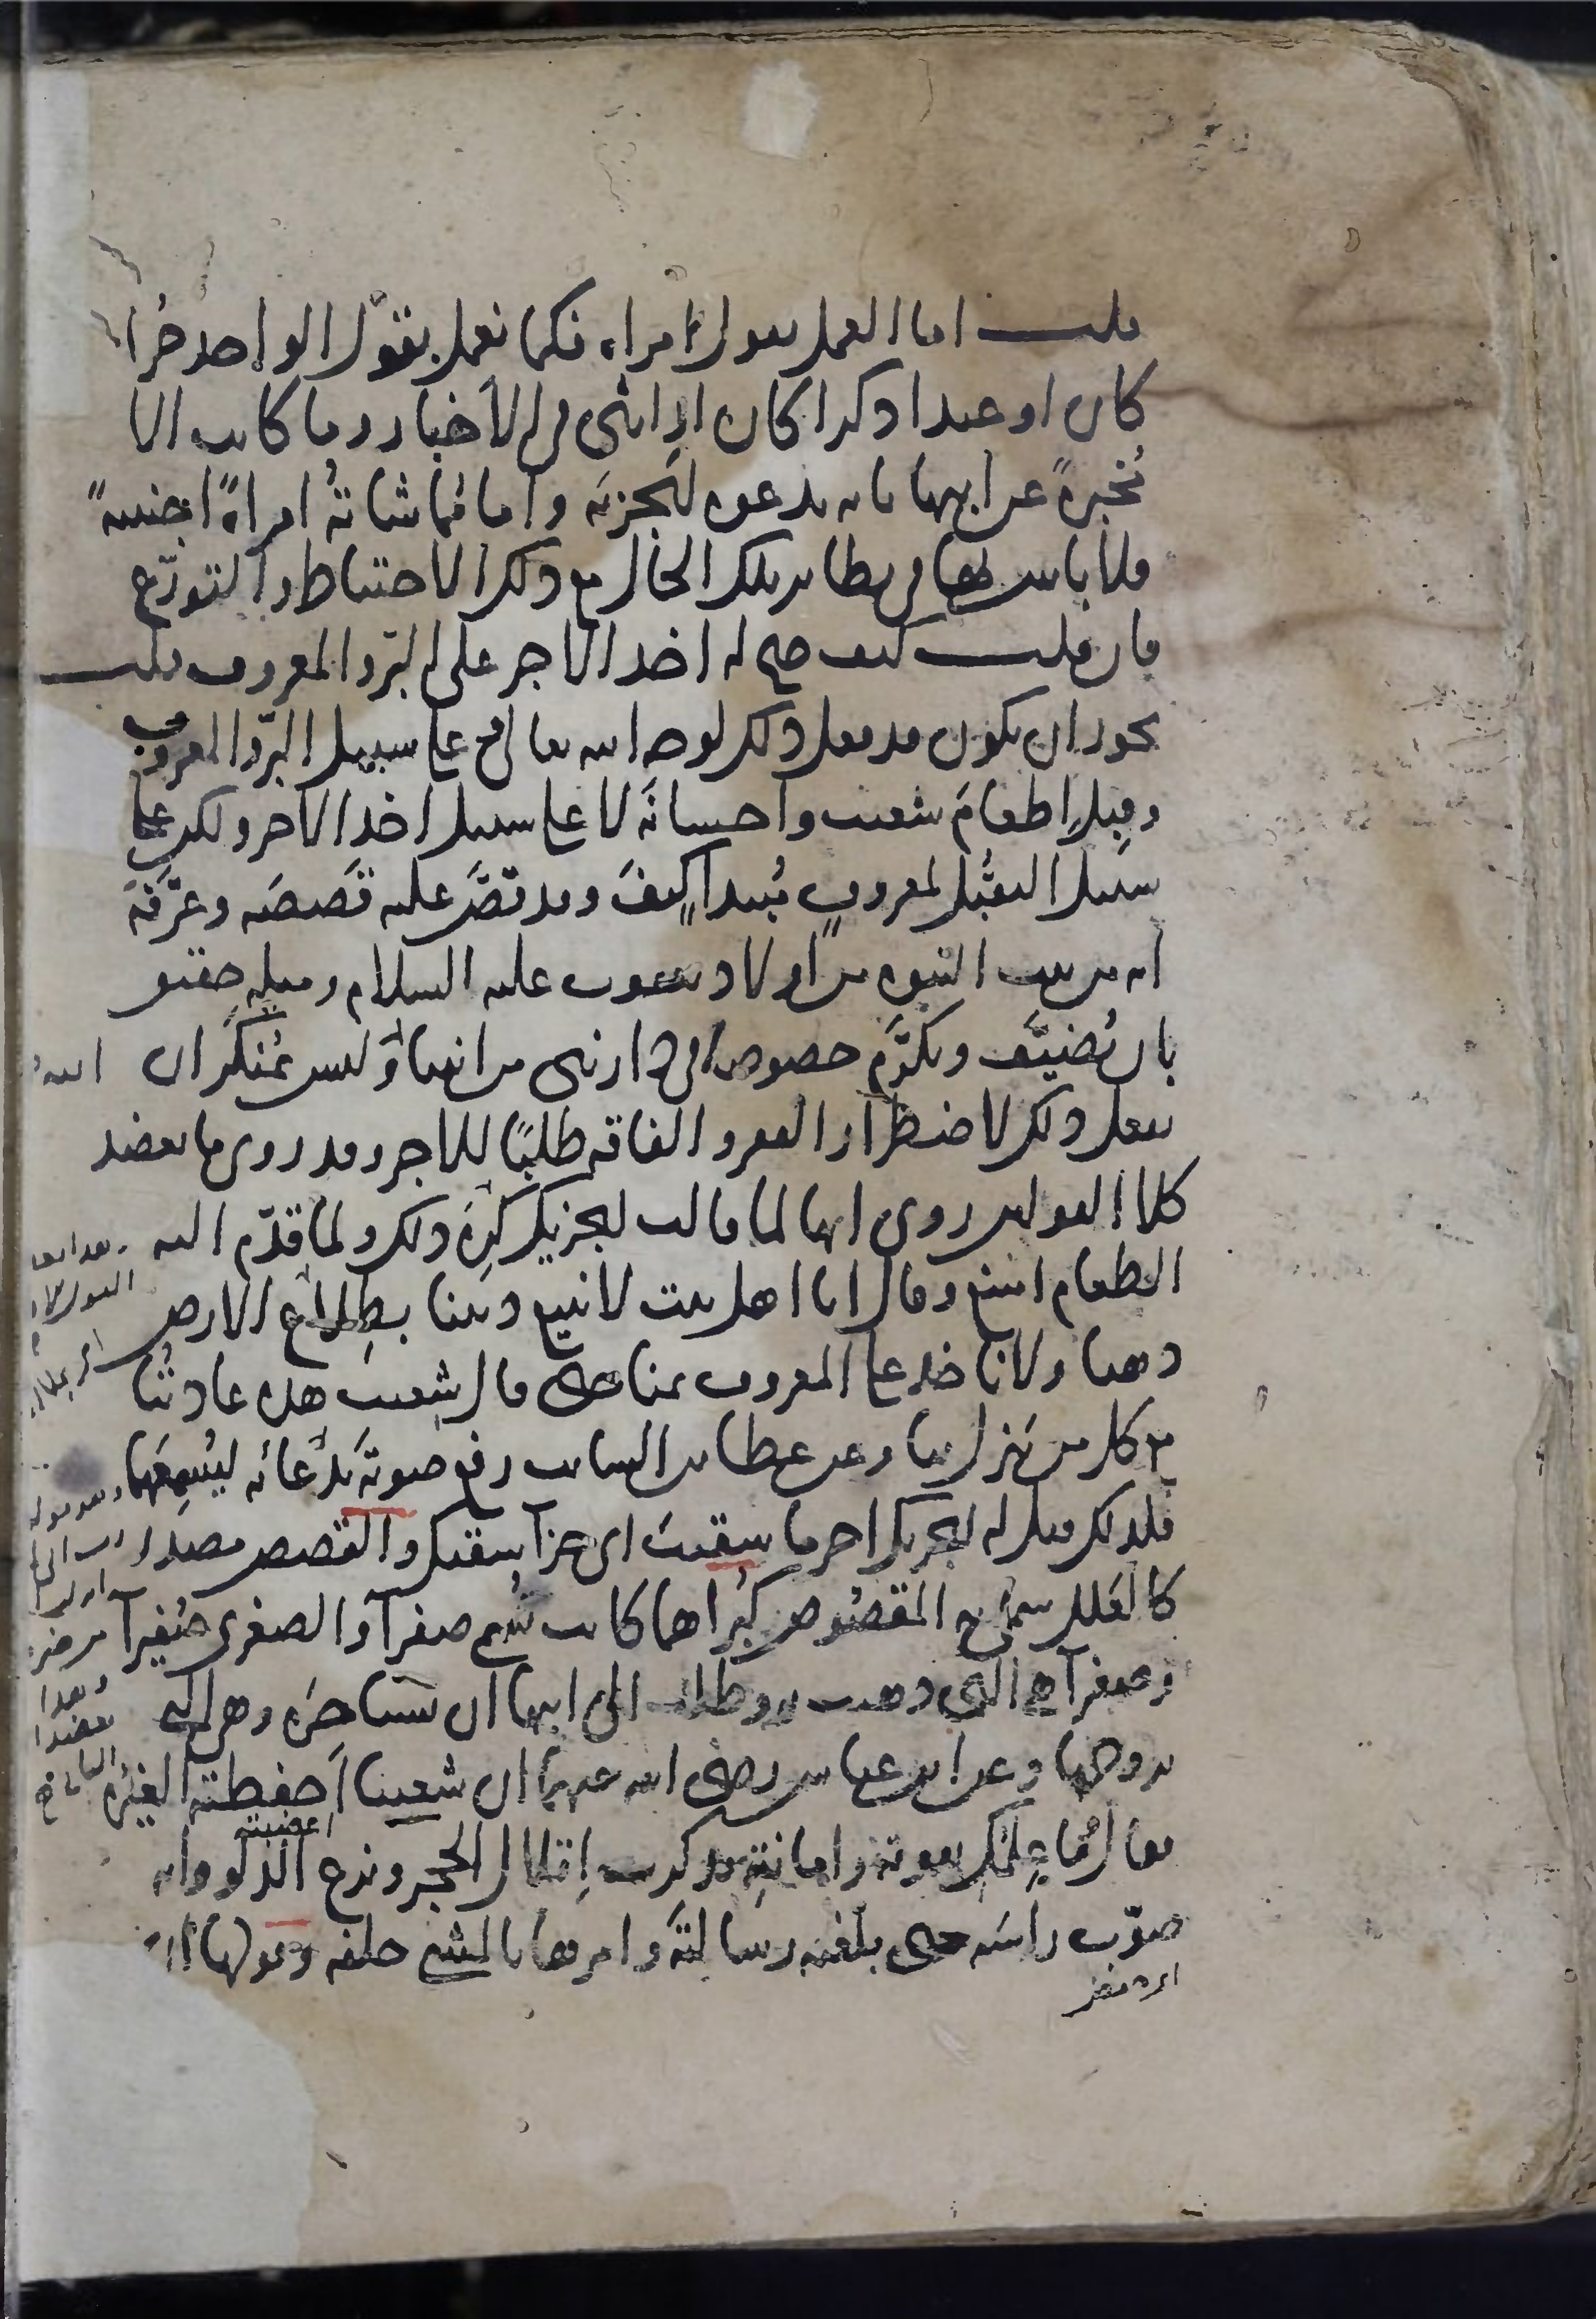 قلت اما العمل بقول امراة فكما نعمل بقول الواحد حُرا
كان او عبدا ذكرا كان او انثى في الأخبار وما كانت الا
مُخبرةً عن ابيها بانه يدعوه ليَجزيَه واما مُماشاتهُ امراةً اجنبيةً
فلا باس بها في نظاير تلك الحال مع ذلك الاحتياط والتورّع
فان قلت كيف صح له اخذ الاجر على البرّ والمعروف قلت
يجوز ان يكون قد فعل ذلك لوجه الله تعالى على سبيل البرّ والمعروف
وقبِل اطعامَ شعيب واحسانَه لا على سبيل اخذ الاجر ولكن على
سبيل التقبُّل لمعروفٍ مُبتدإ كيفَ وقد قصَّ عليه قَصصَه وعرّفهَ
انه من بيت النبوه من اولاد يعقوب عليه السلام ومثله حقيق
بان يُضيَّف ويُكرَّم خصوصا في دار نبي من انبياء وليس بمُنكَر ان الله
يفعل ذلك لاضطرار الفقر والفاقه طلبًا للاجر وقد روى ما يعضد
كلا القولين روى انها لما قالت ليجزيك كَرِه ذلك ولما قدّم اليه
الطعام امتنع وقال انا اهل بيت لا نبيع ديننا بطِلاع الارض
ذهبا ولا ناخذ على المعروف ثمنا حتى قال شعيب هذه عادتُنا
مع كل من يَنزل بنا وعن عطا بن السايب رفع صوتَه بدُعائه ليُسمِعَهما
فلذلك قيل له ليجزيك اجر ما سقيت اى جزآ سقيك والقصص مصدر
كالعَلل سمى به المقصُوص كبراهما كانت تُسمى صفرآ والصغرى صُفيرآ
وصفرآ هى التى ذهبت به وطلبت الى ابيها ان يستاجرَه وهى التى
تزوجها وعن ابن عباس رضى الله عنهما ان شعيبا احفظته الغَيْرة
اغضبته
فقال وما عِلمُك بقوته وامانتِه فذكرت اِقلال الحجر ونزع الدلو وانه
صوّب راسَه حتى بلغته رسالتَه وامرها بالمشى خلفه وقولها